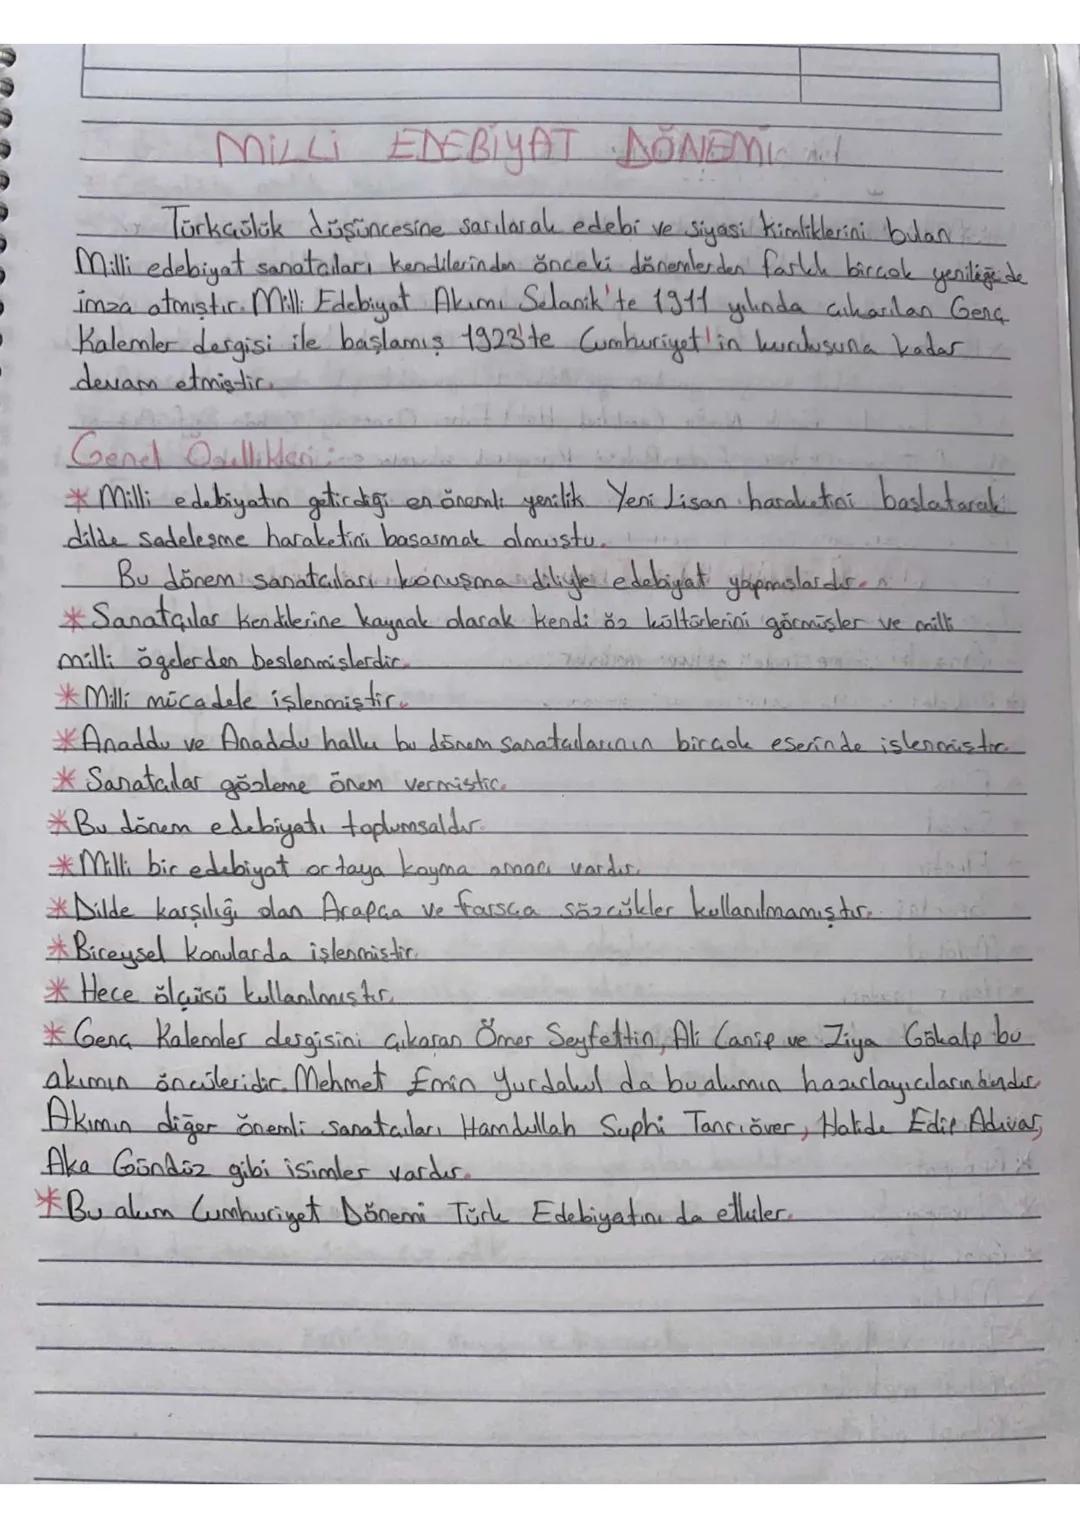 MİLLİ EDEBİYAT DÖNEMİ
Türkçülük düşüncesine sarılarak edebi ve siyasi kimliklerini bulan
Milli edebiyat sanatçıları kendilerinden önceki dönemlerden farklı birçok yeniliğe de
imza atmıştır. Milli Edebiyat Akımı Selanik'te 1911 yılında çıkarılan Genç
Kalemler dergisi ile başlamış 1923'te Cumhuriyet'in kuruluşuna kadar
devam etmiştir.
Genel Özellikleri:
* Milli edebiyatın getirdiği en önemli yenilik Yeni Lisan haraketini başlatarak
dilde sadeleşme haraketini başarmak olmuştu.
Bu dönem sanatçıları konuşma diliyle edebiyat yapmışlardır.
* Sanatçılar kendilerine kaynak olarak kendi öz kültürlerini görmüşler ve milli
milli ögelerden beslenmişlerdir.
* Milli mücadele işlenmiştir.
* Anadolu ve Anadolu halkı bu dönem sanatçılarının birçok eserinde işlenmiştir.
* Sanatçılar gözleme önem vermiştir.
* Bu dönem edebiyatı toplumsaldır.
* Milli bir edebiyat ortaya koyma amacı vardır.
* Dilde karşılığı olan Arapça ve farsça sözcükler kullanılmamıştır.
* Bireysel konularda işlenmiştir.
* Hece ölçüsü kullanılmıştır.
* Genç Kalemler dergisini çıkaran Ömer Seyfettin, Ali Canip ve Ziya Gökalp bu
akımın öncüleridir. Mehmet Emin Yurdakul da bu akımın hazırlayıcılarındandır.
Akımın diğer önemli sanatçıları Hamdullah Suphi Tanrıöver, Halide Edip Adıvar,
Aka Gündüz gibi isimler vardır.
* Bu akım Cumhuriyet Dönemi Türk Edebiyatını da etkiler.